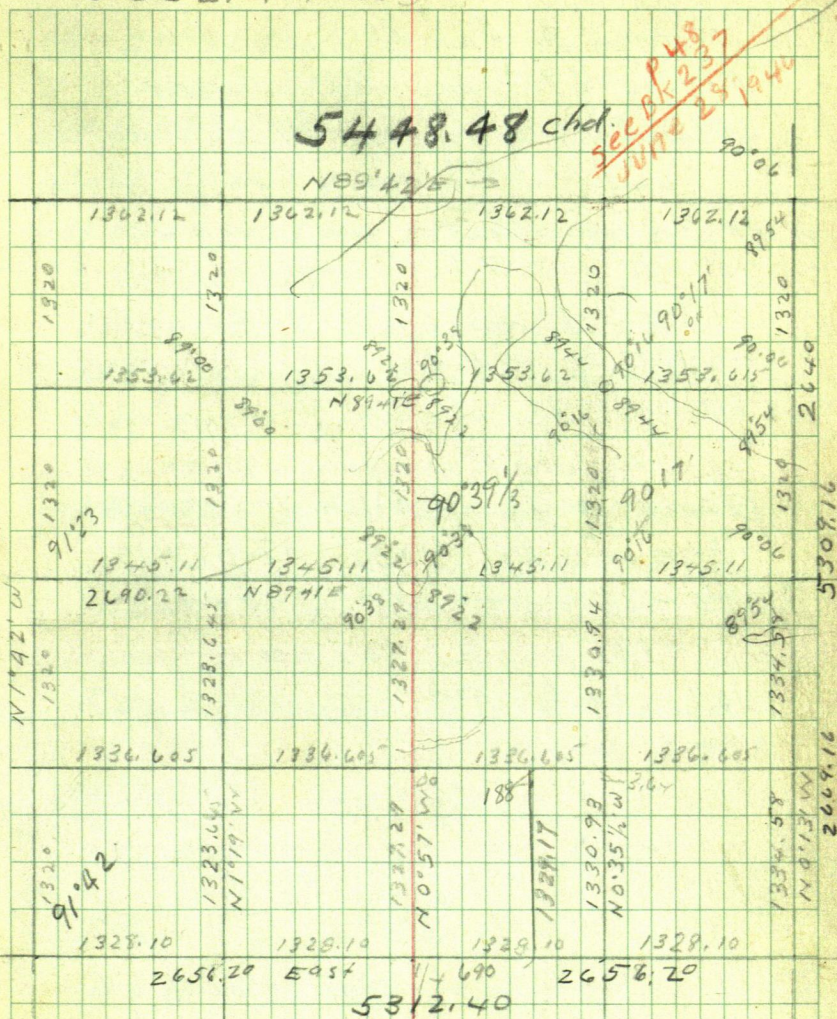 P 48
See BK 237
JUNE 28, 1946
5448.48 chd.
90°06
N89°42'E
1362.12 1362.12 1362.12 1362.12
89°54
1320 1320 1320 1320 1320
90°17'
89°00 89°22 90°38 89°44 90°16 90°06
1353.62 1353.62 1353.62 1353.615
2640
N89°41E
89°00 89°22 90°16 89°44 89°54
1320 1320 1320 1320 1320
90°39 1/3 90 17'
91°23
89°22 90°38 90°16 90°06
5309.16
1345.11 1345.11 1345.11 1345.11
2690.22 N89°41E
90°38 89°22 89°54
N1°42'W
1320 1323.645 1327.29 1330.94 1334.58
1336.605 1336.605 1336.605 1336.605
188 3.64
2669.16
1320 1323.645 1327.29 1329.17 1330.93 1334.58
N1°19'W N0°57'W N0°35½'W N0°13'W
91°42
1328.10 1328.10 1328.10 1328.10
2656.20 East 690 2656.20
5312.40